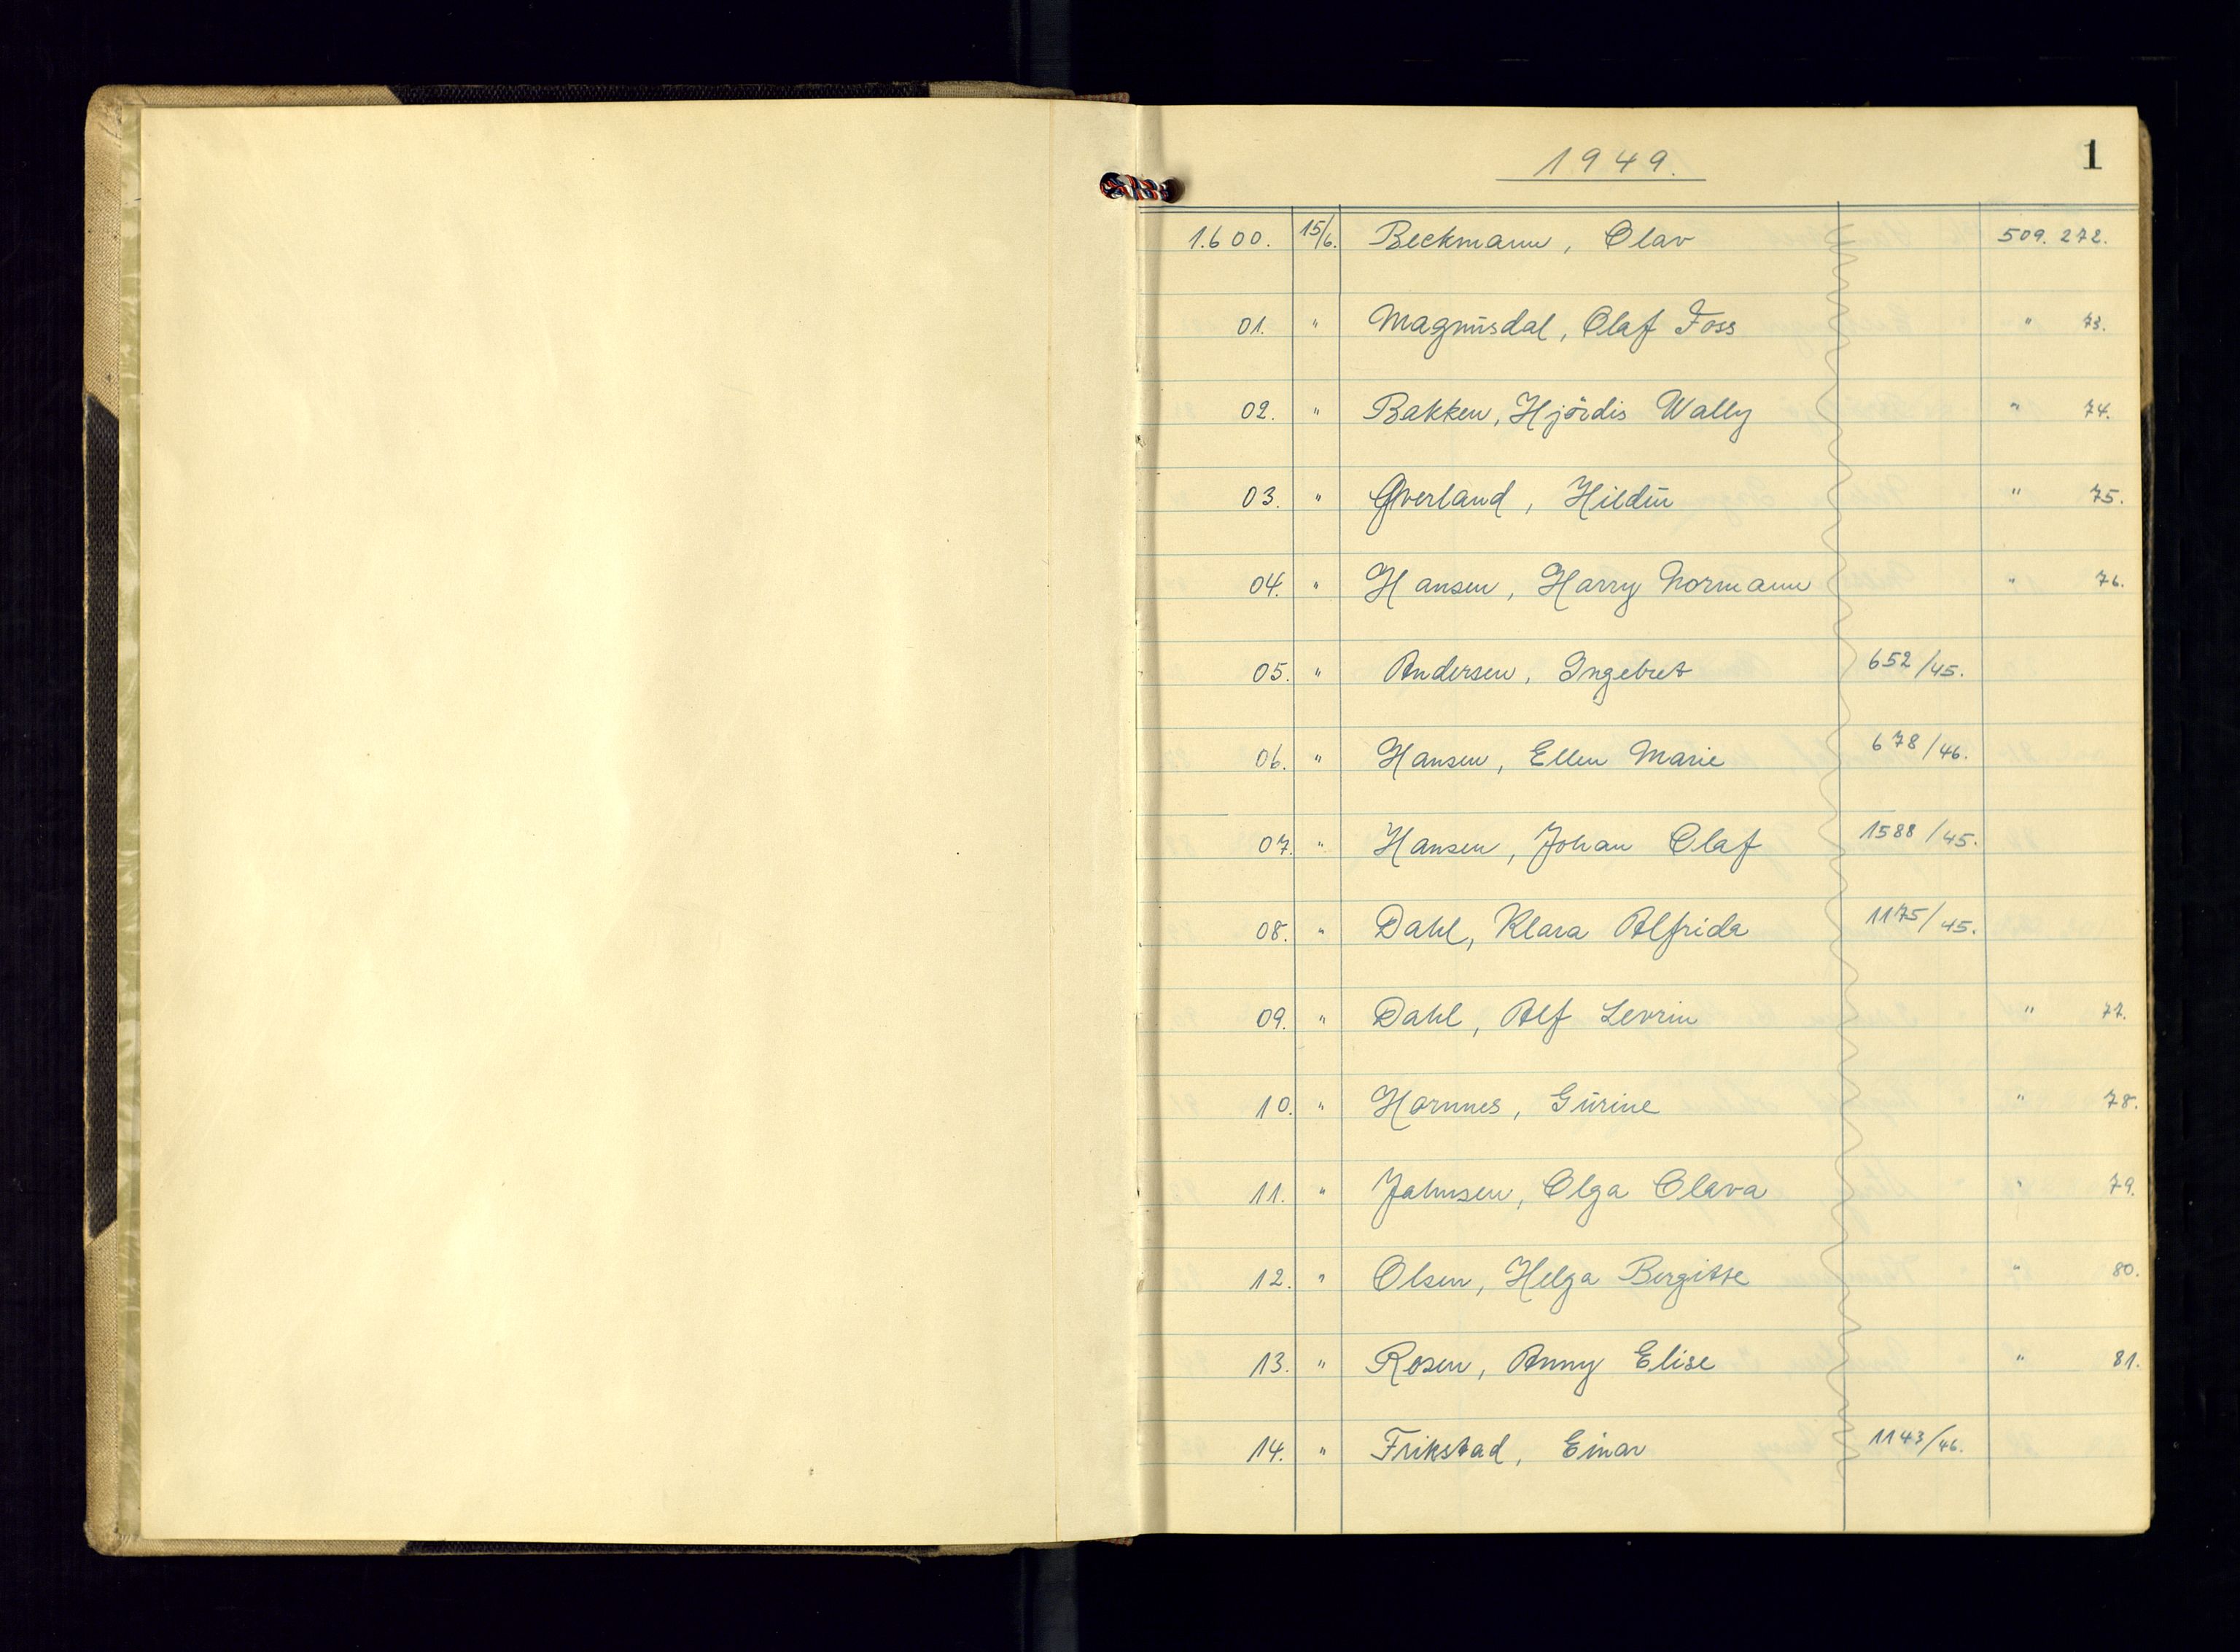 1949.
1
1.600. 15/6. Beckmann, Olav 509.272.
01. " Magnusdal, Olaf Foss " 73.
02. " Bakken, Hjördis Wally " 74.
03. " Øverland, Hildur " 75.
04. " Hansen, Harry Normann " 76.
05. " Andersen, Ingebret 652/45.
06. " Hansen, Ellen Marie 678/46.
07. " Hansen, Johan Olaf 1588/45.
08. " Dahl, Klara Alfrida 1175/45.
09. " Dahl, Alf Levrin " 77.
10. " Hornnes, Gurine " 78.
11. " Jahnsen, Olga Olava " 79.
12. " Olsen, Helga Bergitte " 80.
13. " Rosen, Anny Elise " 81.
14. " Frikstad, Einar 1143/46.